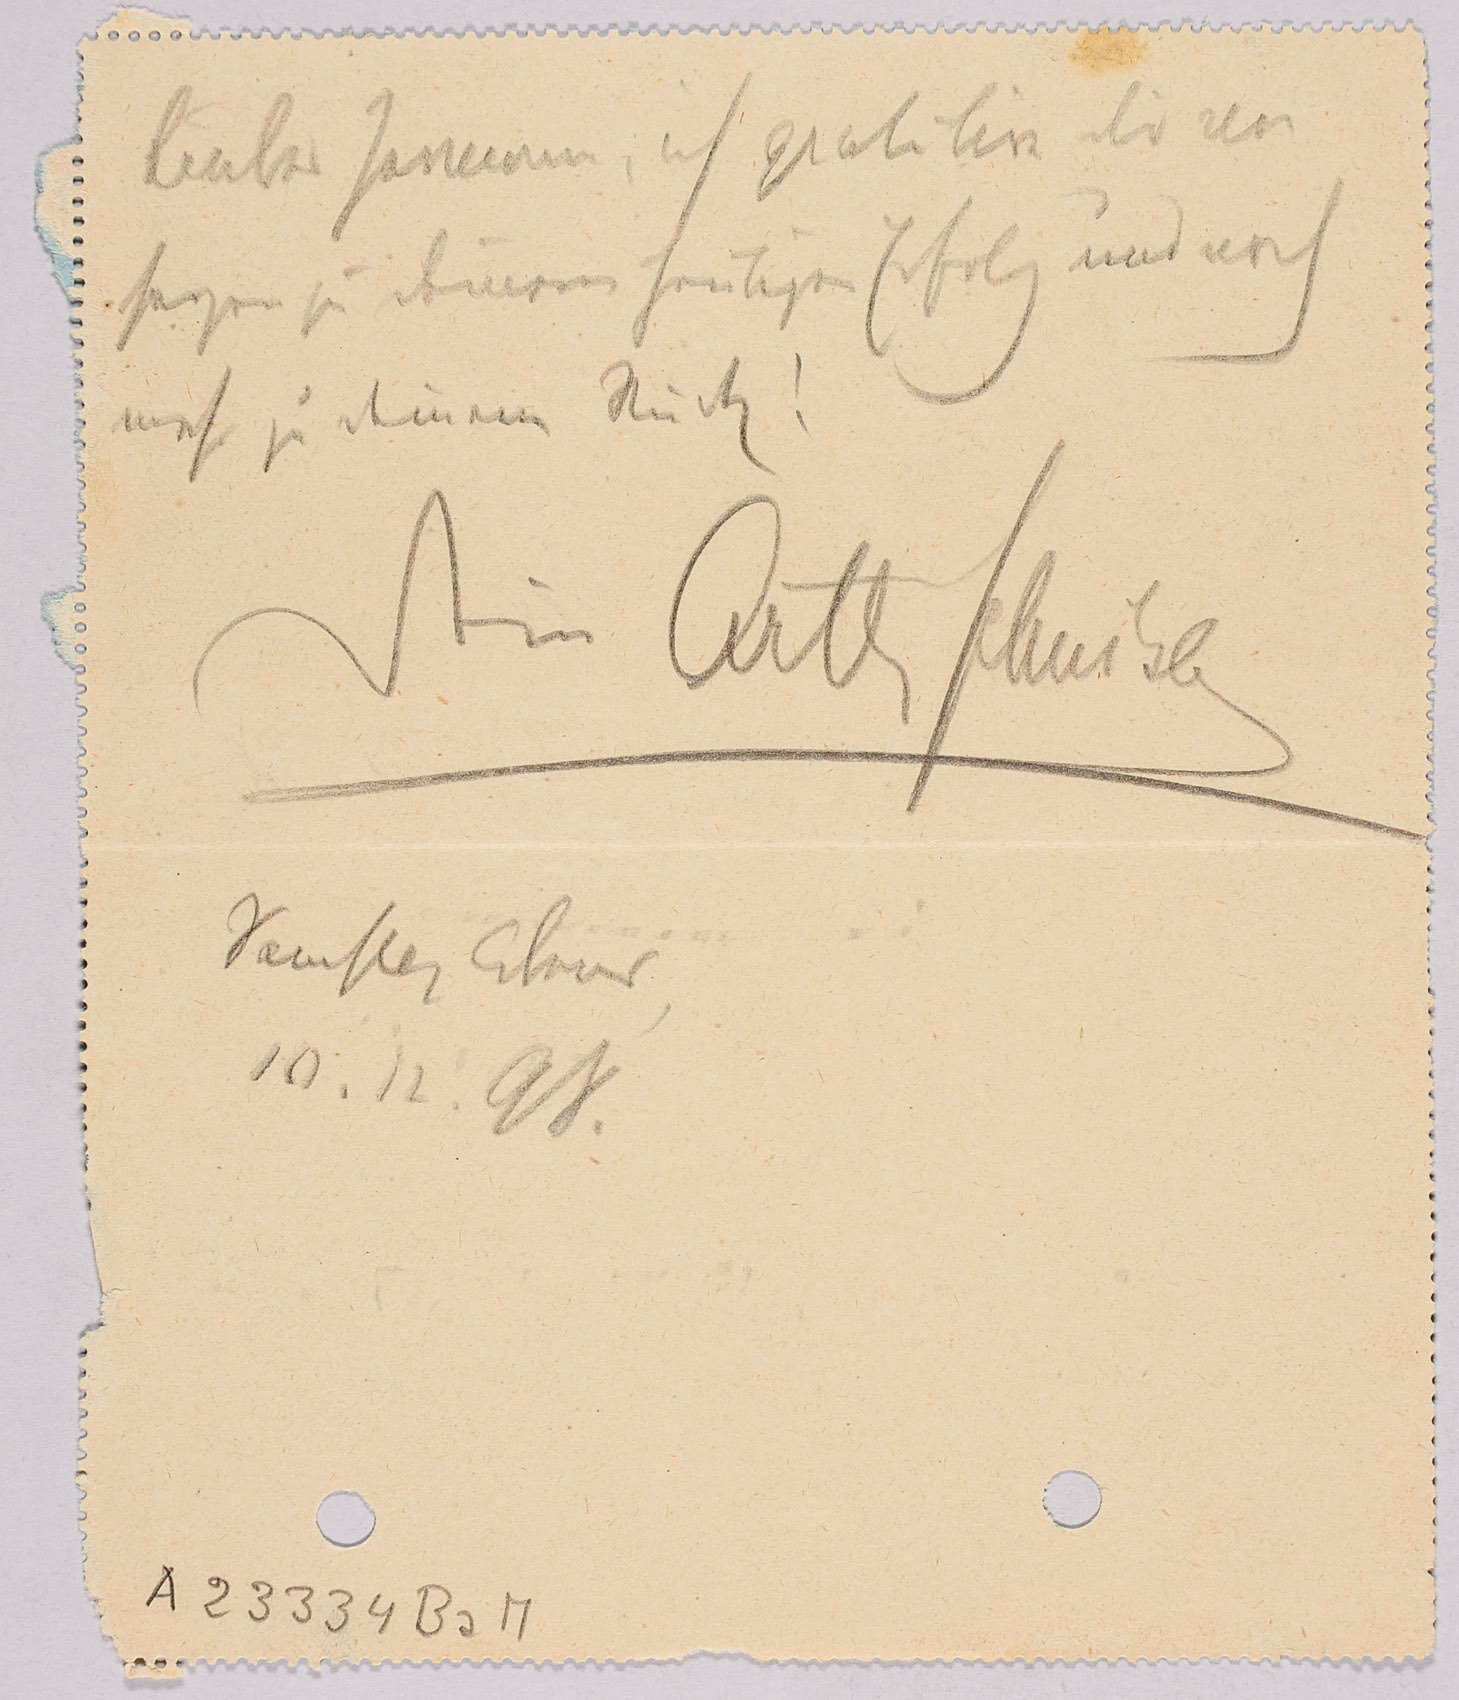 Lieber Hermann, ich gratulire dir von
Herzen zu deinem heutigen Erfolg und noch
mehr zu deinem Stück!
Dein Arthur Schnitzler
Samstag Abend,
10. 12. 98.
A 23334 Ba M